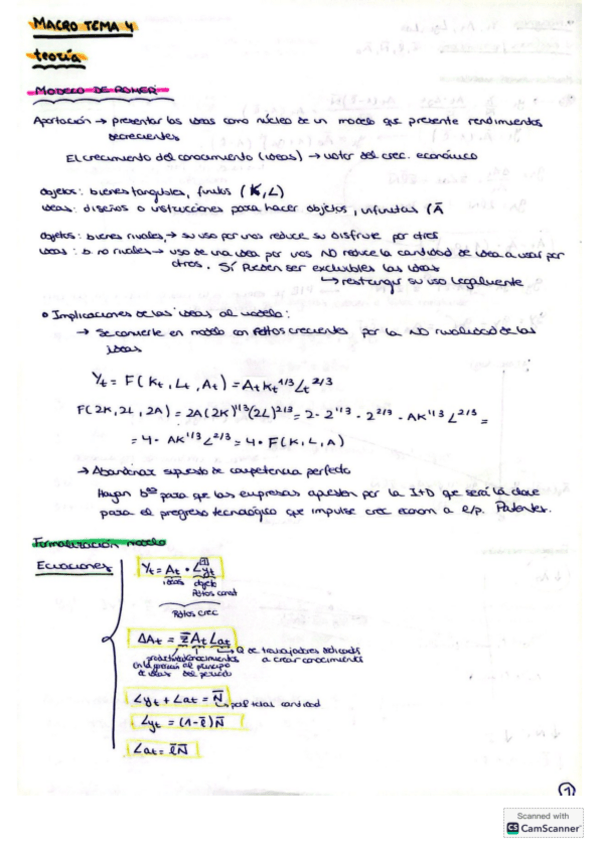 MACRO TEMA 4
teoría
MODELO DE ROMER
Aportación → presentar las ideas como núcleo de un modelo que presente rendimientos
decrecientes
El crecimiento del conocimiento (ideas) → motor del crec. económico
objetos: bienes tangibles, finitos (K, L)
ideas: diseños o instrucciones para hacer objetos, infinitas (Ā
objetos: bienes rivales → su uso por unos reduce su disfrute por otros
ideas: b no rivales → uso de una idea por unos NO reduce la cantidad de idea a usar por
otros. Sí pueden ser excluibles las ideas
↳ restringir su uso legalmente
• Implicaciones de las ideas al modelo:
→ Se convierte en modelo con Rdtos crecientes por la NO rivalidad de las
ideas
Yt = F(Kt, Lt, At) = At Kt^1/3 Lt^2/3
F(2K, 2L, 2A) = 2A(2K)^1/3 (2L)^2/3 = 2·2^1/3·2^2/3·AK^1/3 L^2/3 =
= 4·AK^1/3 L^2/3 = 4·F(K, L, A)
→ Abandonar supuesto de competencia perfecta
Hayan bºs para que las empresas apuesten por la I+D que será la clave
para el progreso tecnológico que impulse crec econom a l/p. Patentes.
Formalización modelo
Ecuaciones
Yt = At · Lyt
ideas objeto
Rdtos const
Rdtos crec
ΔAt = z̄ At Lat → Q de trabajadores dedicados
a crear conocimiento
productividad conocimientos
en la al principio
de ideas del periodo
Lyt + Lat = N̄
↳ pobl total cantidad
Lyt = (1-l̄)N̄
Lat = l̄N̄
1
Scanned with
CS CamScanner